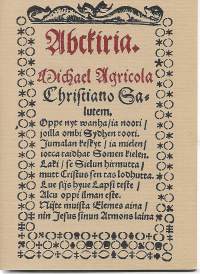 Abckiria.
Michael Agricola
Christiano Sa-
lutem.
Oppe nyt wanha / ia noori /
joilla ombi Sydhen toori.
Jumalan keskyt / ia mielen /
iotca taidhat Somen kielen.
Laki / se Sielun hirmutta /
mutt Cristus sen tas lodhutta.
Lue sijs hyue Lapsi teste /
Alcu oppi ilman este.
Nijste muista Elemes aina /
nin Jesus sinun Armons laina